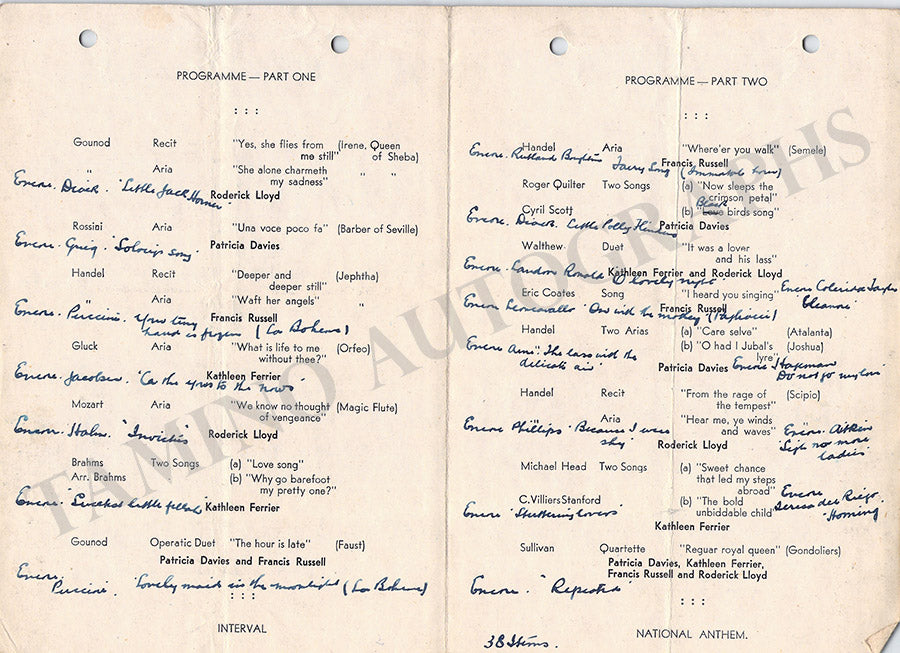 PROGRAMME — PART ONE
: : :
Gounod Recit "Yes, she flies from (Irene, Queen
me still" of Sheba)
" Aria "She alone charmeth " "
my sadness"
Encore. Diack. "Little Jack Horner"
Roderick Lloyd
Rossini Aria "Una voce poco fa" (Barber of Seville)
Encore. Grieg. "Solveigs song" Patricia Davies
Handel Recit "Deeper and (Jephtha)
deeper still"
" Aria "Waft her angels" "
Encore. Puccini. Your tiny Francis Russell
hand is frozen (La Boheme)
Gluck Aria "What is life to me (Orfeo)
without thee?"
Kathleen Ferrier
Encore. "to the
Mozart Aria "We know no thought (Magic Flute)
of vengeance"
Encore. Hahn. "Invictus" Roderick Lloyd
Brahms Two Songs (a) "Love song"
Arr. Brahms (b) "Why go barefoot
my pretty one?"
Encore "Sweetest little fellah" Kathleen Ferrier
Gounod Operatic Duet "The hour is late" (Faust)
Patricia Davies and Francis Russell
Encore.
Puccini. "Lovely maid in the moonlight" (La Boheme)
: : :
INTERVAL
PROGRAMME — PART TWO
: : :
Handel Aria "Where'er you walk" (Semele)
Encore. Rutland Boughton Faery Song (Immortal Hour)
Francis Russell
Roger Quilter Two Songs (a) "Now sleeps the
crimson petal"
Black
Cyril Scott (b) "Love birds song"
Encore. Diack. Little Polly Flinders Patricia Davies
Walthew Duet "It was a lover
and his lass"
Kathleen Ferrier and Roderick Lloyd
Encore. Landon Ronald O lovely night
Eric Coates Song "I heard you singing" Encore Coleridge Taylor
Eleanore
Francis Russell
Encore Leoncavallo On with the motley (Pagliacci)
Handel Two Arias (a) "Care selve" (Atalanta)
(b) "O had I Jubal's (Joshua)
lyre"
Encore Arne. The lass with the
delicate air" Patricia Davies Encore
Do not go my love"
Handel Recit "From the rage of (Scipio)
the tempest"
Aria "Hear me, ye winds
and waves"
Encore Phillips. Because I were
shy" Roderick Lloyd
Encore. Aitken
"Sigh no more
ladies"
Michael Head Two Songs (a) "Sweet chance
that led my steps
abroad"
C. Villiers Stanford (b) "The bold
unbiddable child"
Encore "Stuttering lovers"
Encore
Teresa del Riego
"Homing
Kathleen Ferrier
Sullivan Quartette "Reguar royal queen" (Gondoliers)
Patricia Davies, Kathleen Ferrier,
Francis Russell and Roderick Lloyd
Encore. "Repeated
: : :
38 Items.
NATIONAL ANTHEM.
TAMINO AUTOGRAPHS